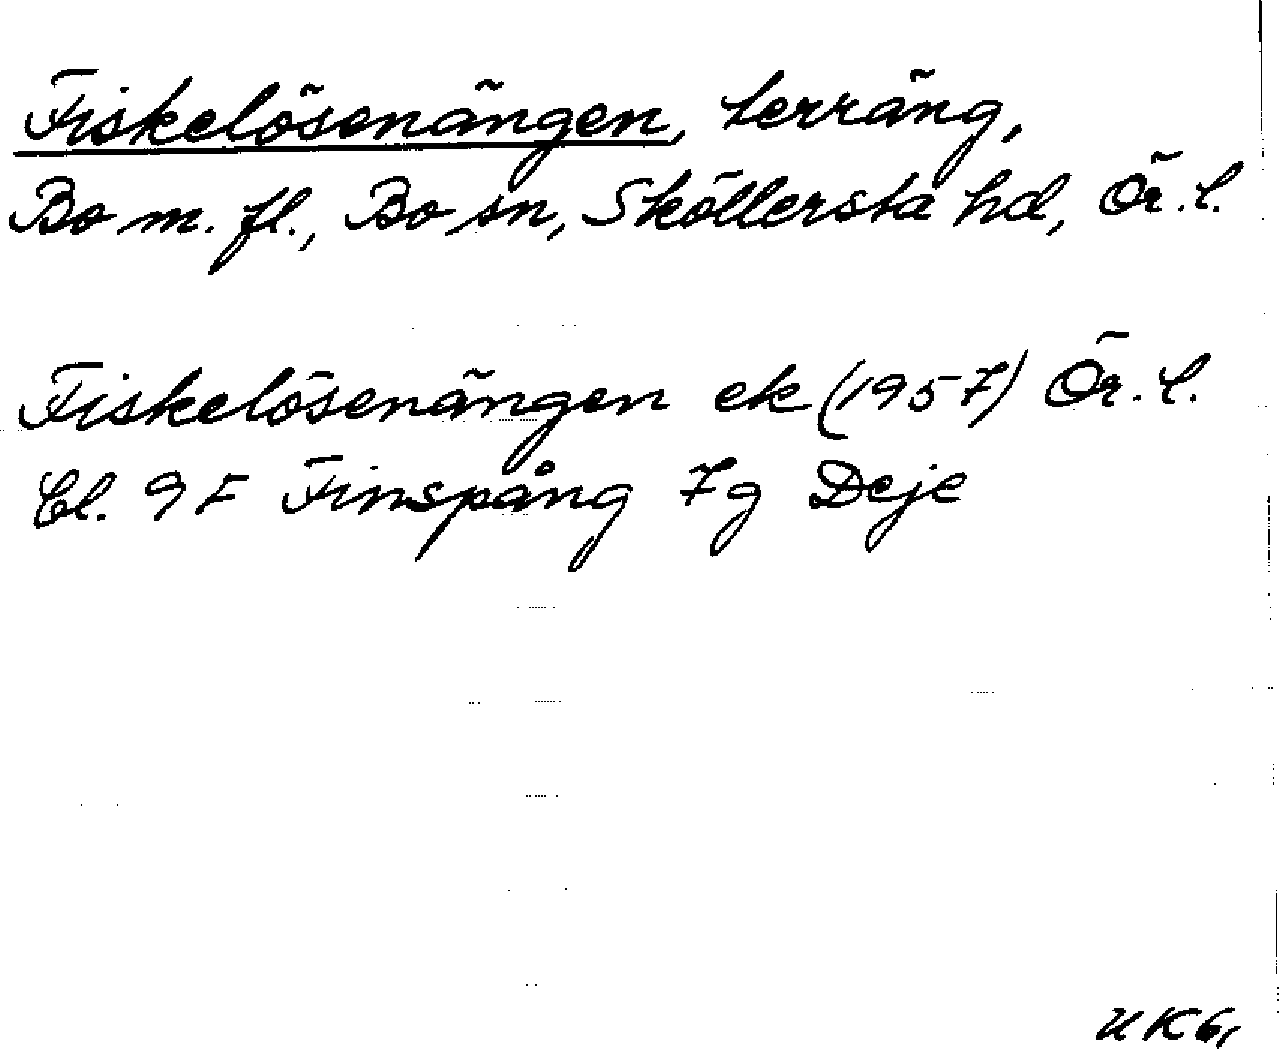 Fiskelösenängen, terräng,
Bo m. fl., Bo sn, Sköllersta hd, Ör. l.
Fiskelösenängen ek (1957) Ör. l.
bl. 9F Finspång 7g Deje